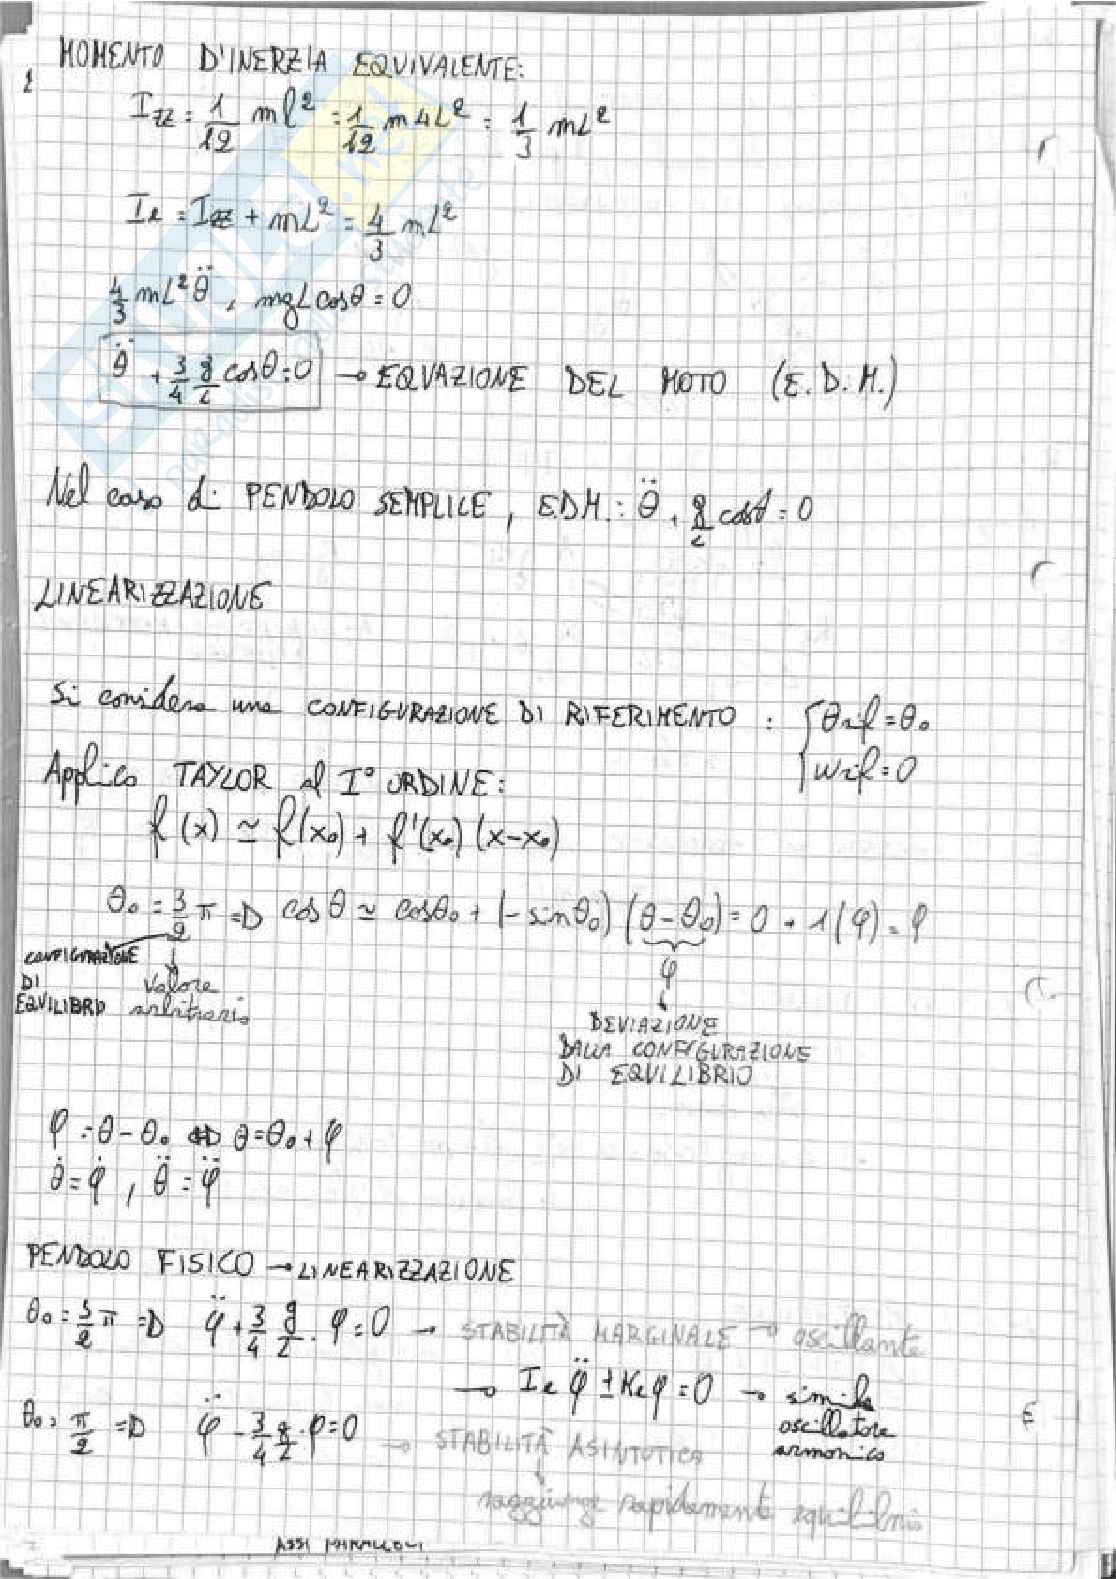 2
MOMENTO D'INERZIA EQUIVALENTE:
Izz = 1/12 ml² = 1/12 m4L² = 1/3 mL²
Ie = Izz + mL² = 4/3 mL²
4/3 mL² θ̈ + mgL cosθ = 0
θ̈ + 3/4 g/L cosθ = 0 → EQUAZIONE DEL MOTO (E.D.M.)
Nel caso di PENDOLO SEMPLICE, E.D.M.: θ̈ + g/L cosθ = 0
LINEARIZZAZIONE
Si considera una CONFIGURAZIONE DI RIFERIMENTO : { θrif = θ₀
ωrif = 0
Applico TAYLOR al I° ORDINE:
f(x) ≃ f(x₀) + f'(x₀) (x-x₀)
θ₀ = 3/2 π => cosθ ≃ cosθ₀ + (-sinθ₀) (θ-θ₀) = 0 + 1(φ) = φ
CONFIGURAZIONE DI EQUILIBRIO
valore arbitrario
φ
↓
DEVIAZIONE
DALLA CONFIGURAZIONE
DI EQUILIBRIO
φ = θ - θ₀ <=> θ = θ₀ + φ
θ̇ = φ̇ , θ̈ = φ̈
PENDOLO FISICO → LINEARIZZAZIONE
θ₀ = 3/2 π => φ̈ + 3/4 g/L · φ = 0 → STABILITÀ MARGINALE → oscillante
→ Ie φ̈ ± Ke φ = 0 → simile
oscillatore
armonico
θ₀ = π/2 => φ̈ - 3/4 g/L · φ = 0 → STABILITÀ ASINTOTICA
↓
raggiunge rapidamente equilibrio
ASSI